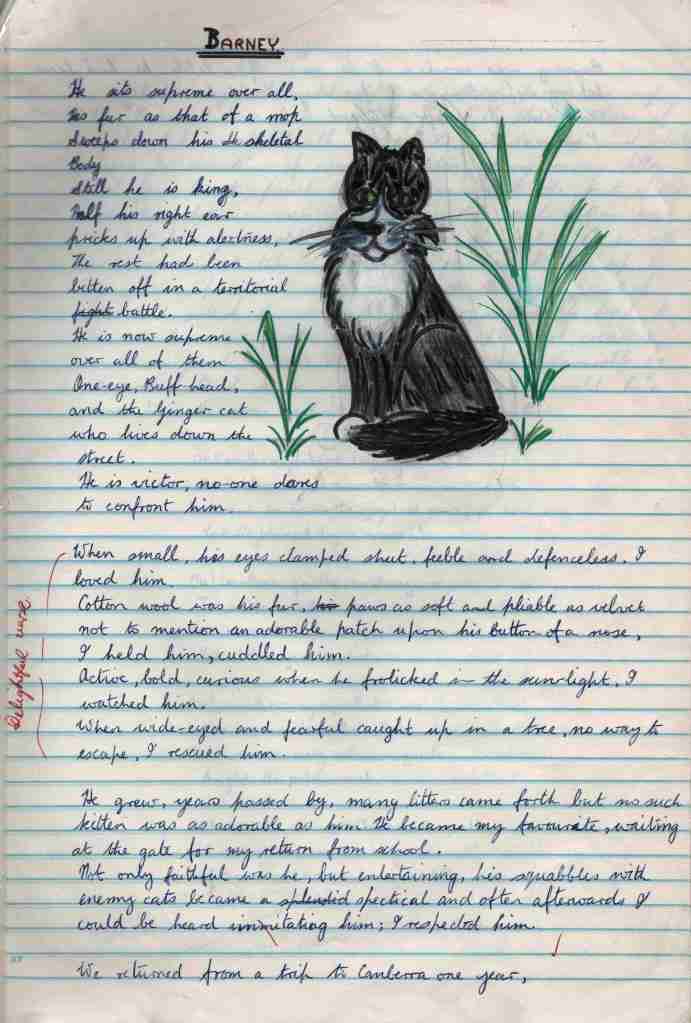 BARNEY
He sits supreme over all,
His fur as that of a mop
Sweeps down his skeletal
Body
Still he is king,
Half his right ear
pricks up with alertness,
The rest had been
bitten off in a territorial
fight battle.
He is now supreme
over all of them
One-eye, Buff-head,
and the Ginger cat
who lives down the
street.
He is victor, no-one dares
to confront him.
Delightful verse.
When small, his eyes clamped shut, feeble and defenceless, I
loved him.
Cotton wool was his fur, his paws as soft and pliable as velvet
not to mention an adorable patch upon his button of a nose,
I held him, cuddled him.
Active, bold, curious when he frolicked in the sun-light, I
watched him.
When wide-eyed and fearful caught up in a tree, no way to
escape, I rescued him.
He grew, years passed by, many litters came forth but no such
kitten was as adorable as him. He became my favourite, waiting
at the gate for my return from school.
Not only faithful was he, but entertaining, his squabbles with
enemy cats became a splendid spectical and often afterwards I
could be heard immitating him; I respected him.
We returned from a trip to Canberra one year,